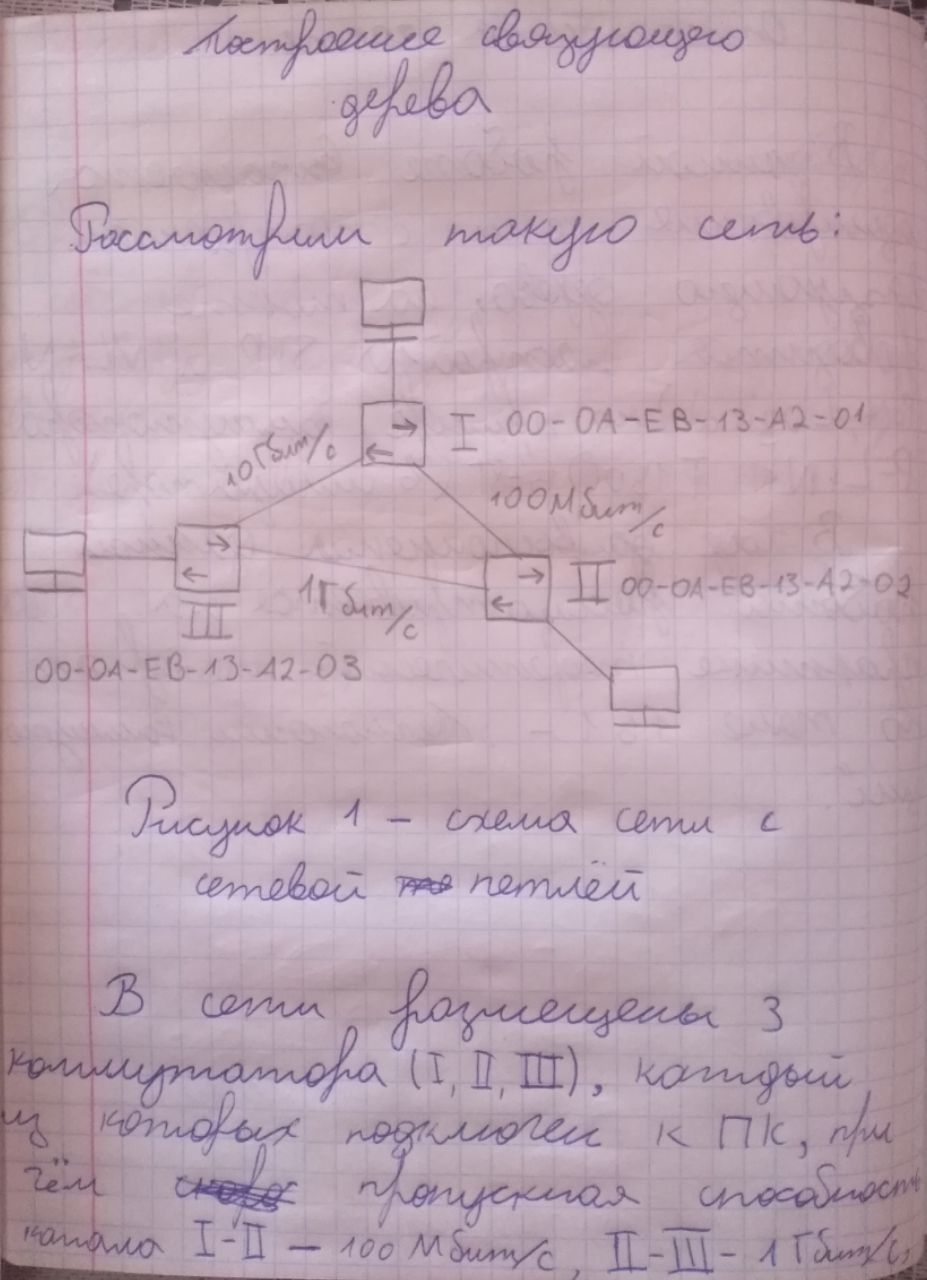 Построение связующего
дерева
Рассмотрим такую сеть:
I 00-0A-EB-13-A2-01
10Гбит/с
100Мбит/с
1Гбит/с
II 00-0A-EB-13-A2-02
III
00-0A-EB-13-A2-03
Рисунок 1 - схема сети с
сетевой петлёй
В сети размещены 3
коммутатора (I, II, III), каждый
из которых подключен к ПК, при
чём пропускная способность
канала I-II - 100 Мбит/с, II-III - 1 Гбит/с,